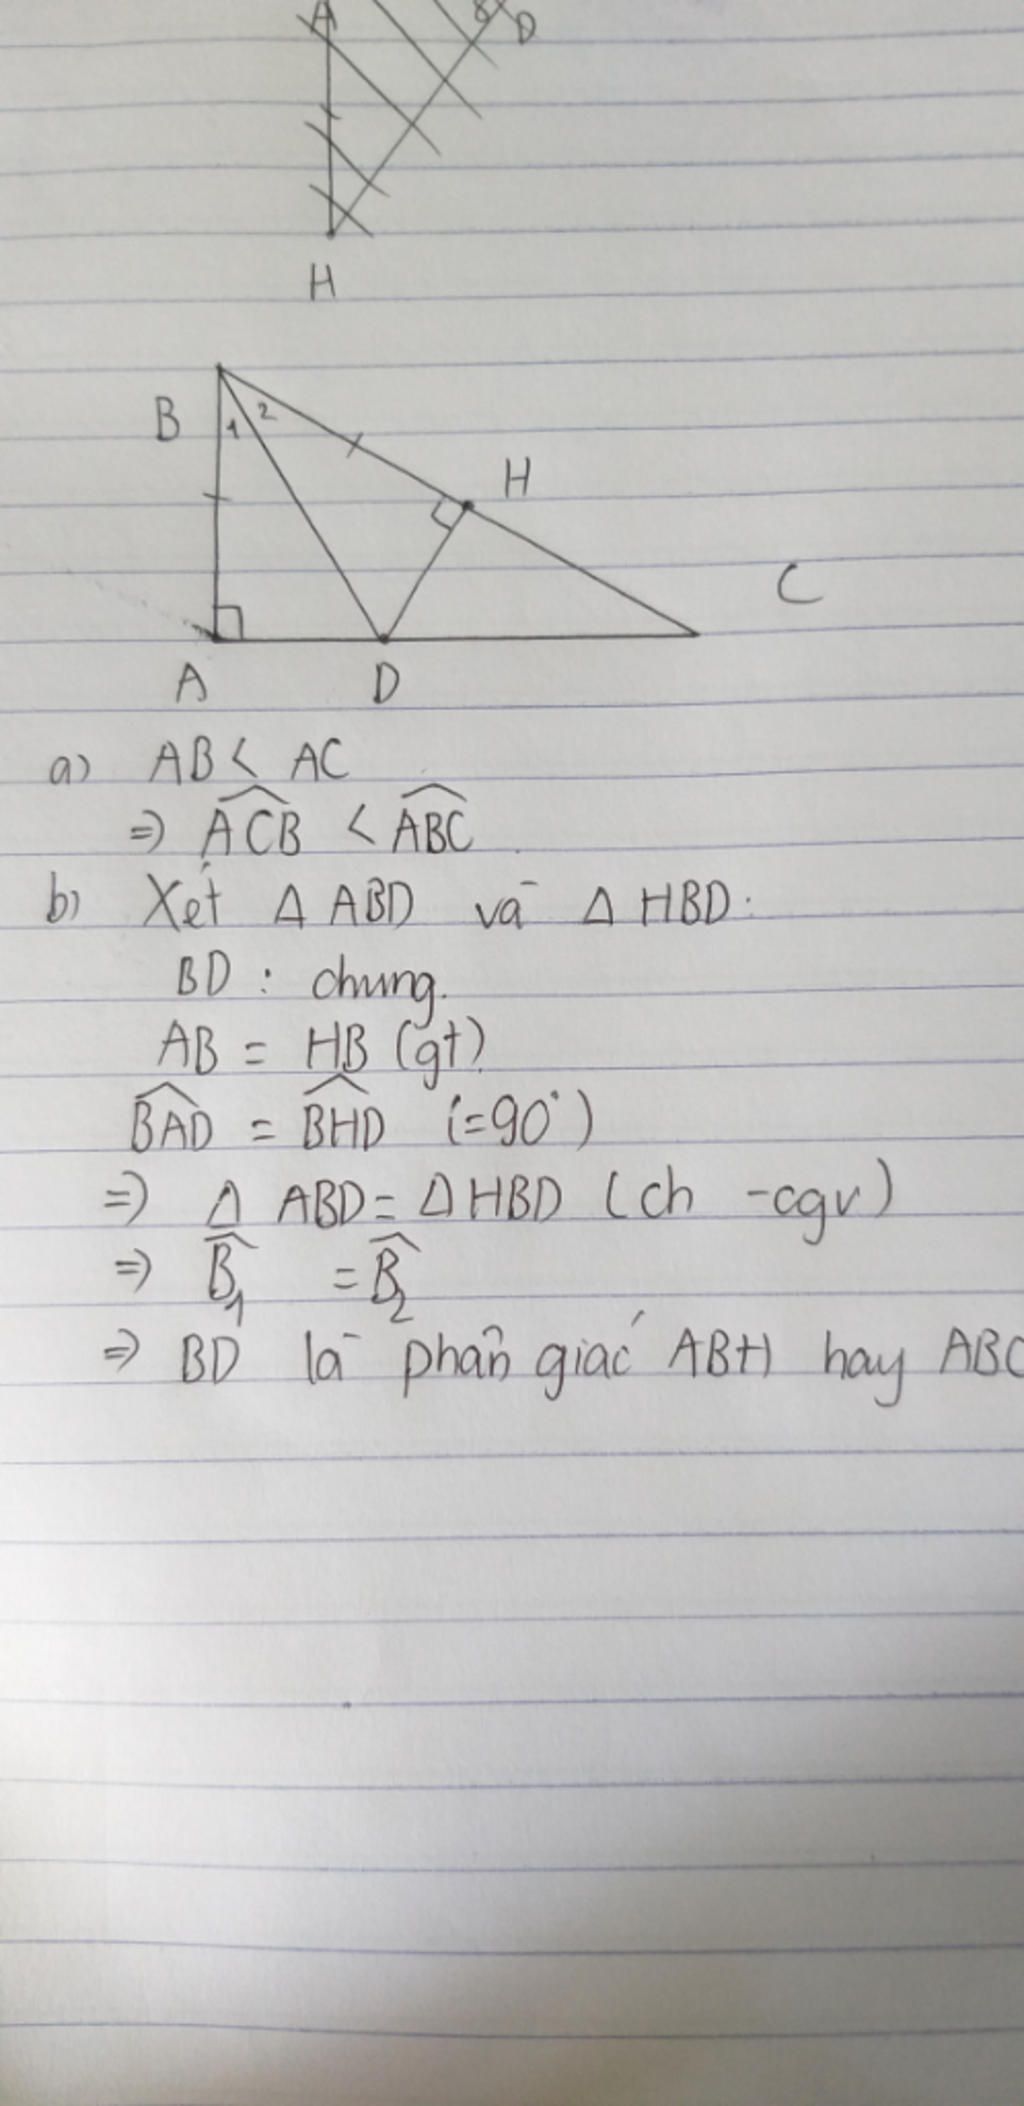 A
D
H
B
1 2
H
C
A D
a) AB < AC
=> ACB < ABC
b) Xét Δ ABD và Δ HBD:
BD : chung.
AB = HB (gt)
BAD = BHD (=90°)
=> Δ ABD = Δ HBD (ch - cgv)
=> B1 = B2
=> BD là phân giác ABH hay ABC